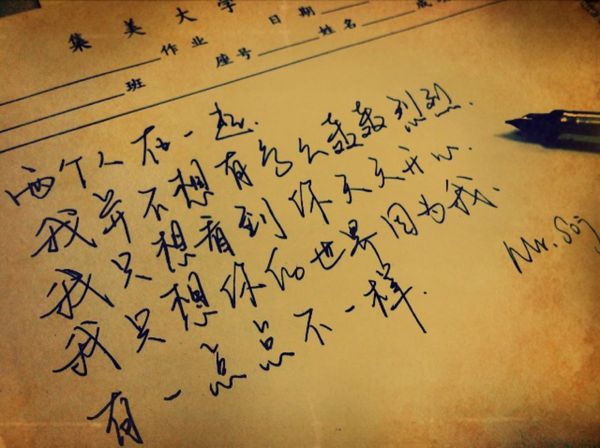 集美大学
作业 座号 姓名 成
班 日期
两个人在一起.
我并不想有多么轰轰烈烈.
我只想看到你天天开心.
我只想你的世界因为我.
有一点点不一样.
Mr. Song